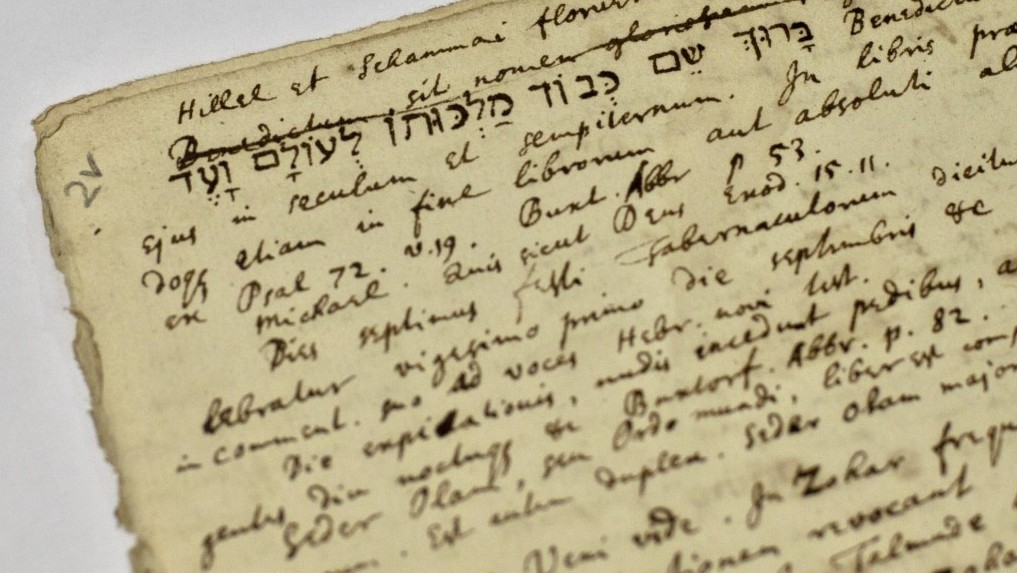 Hillel et Schammai
Benedictum sit nomen gloriosum
בָּרוּךְ שֵׁם כְּבוֹד מַלְכוּתוֹ לְעוֹלָם וָעֶד Benedictum
ejus in seculum et sempiternum. In libris
etiam in fine librorum aut absoluti
ex Psal 72. v.19. Buxt. Abbr p 53.
Michael. Quis sicut Deus Exod. 15.11.
Dies septimus festi Tabernaculorum
lebratur vigesimo primo die septembris &c
in comment. suo ad voces Hebr. novi test.
Die expiationis, nudis incedunt pedibus,
diu noctuqȝ &c Buxtorf. Abbr. p. 82.
Seder Olam, seu Ordo mundi, liber est
Est autem duplex. Seder olam major
Veni vide. In Zohar
revocant
Talmude